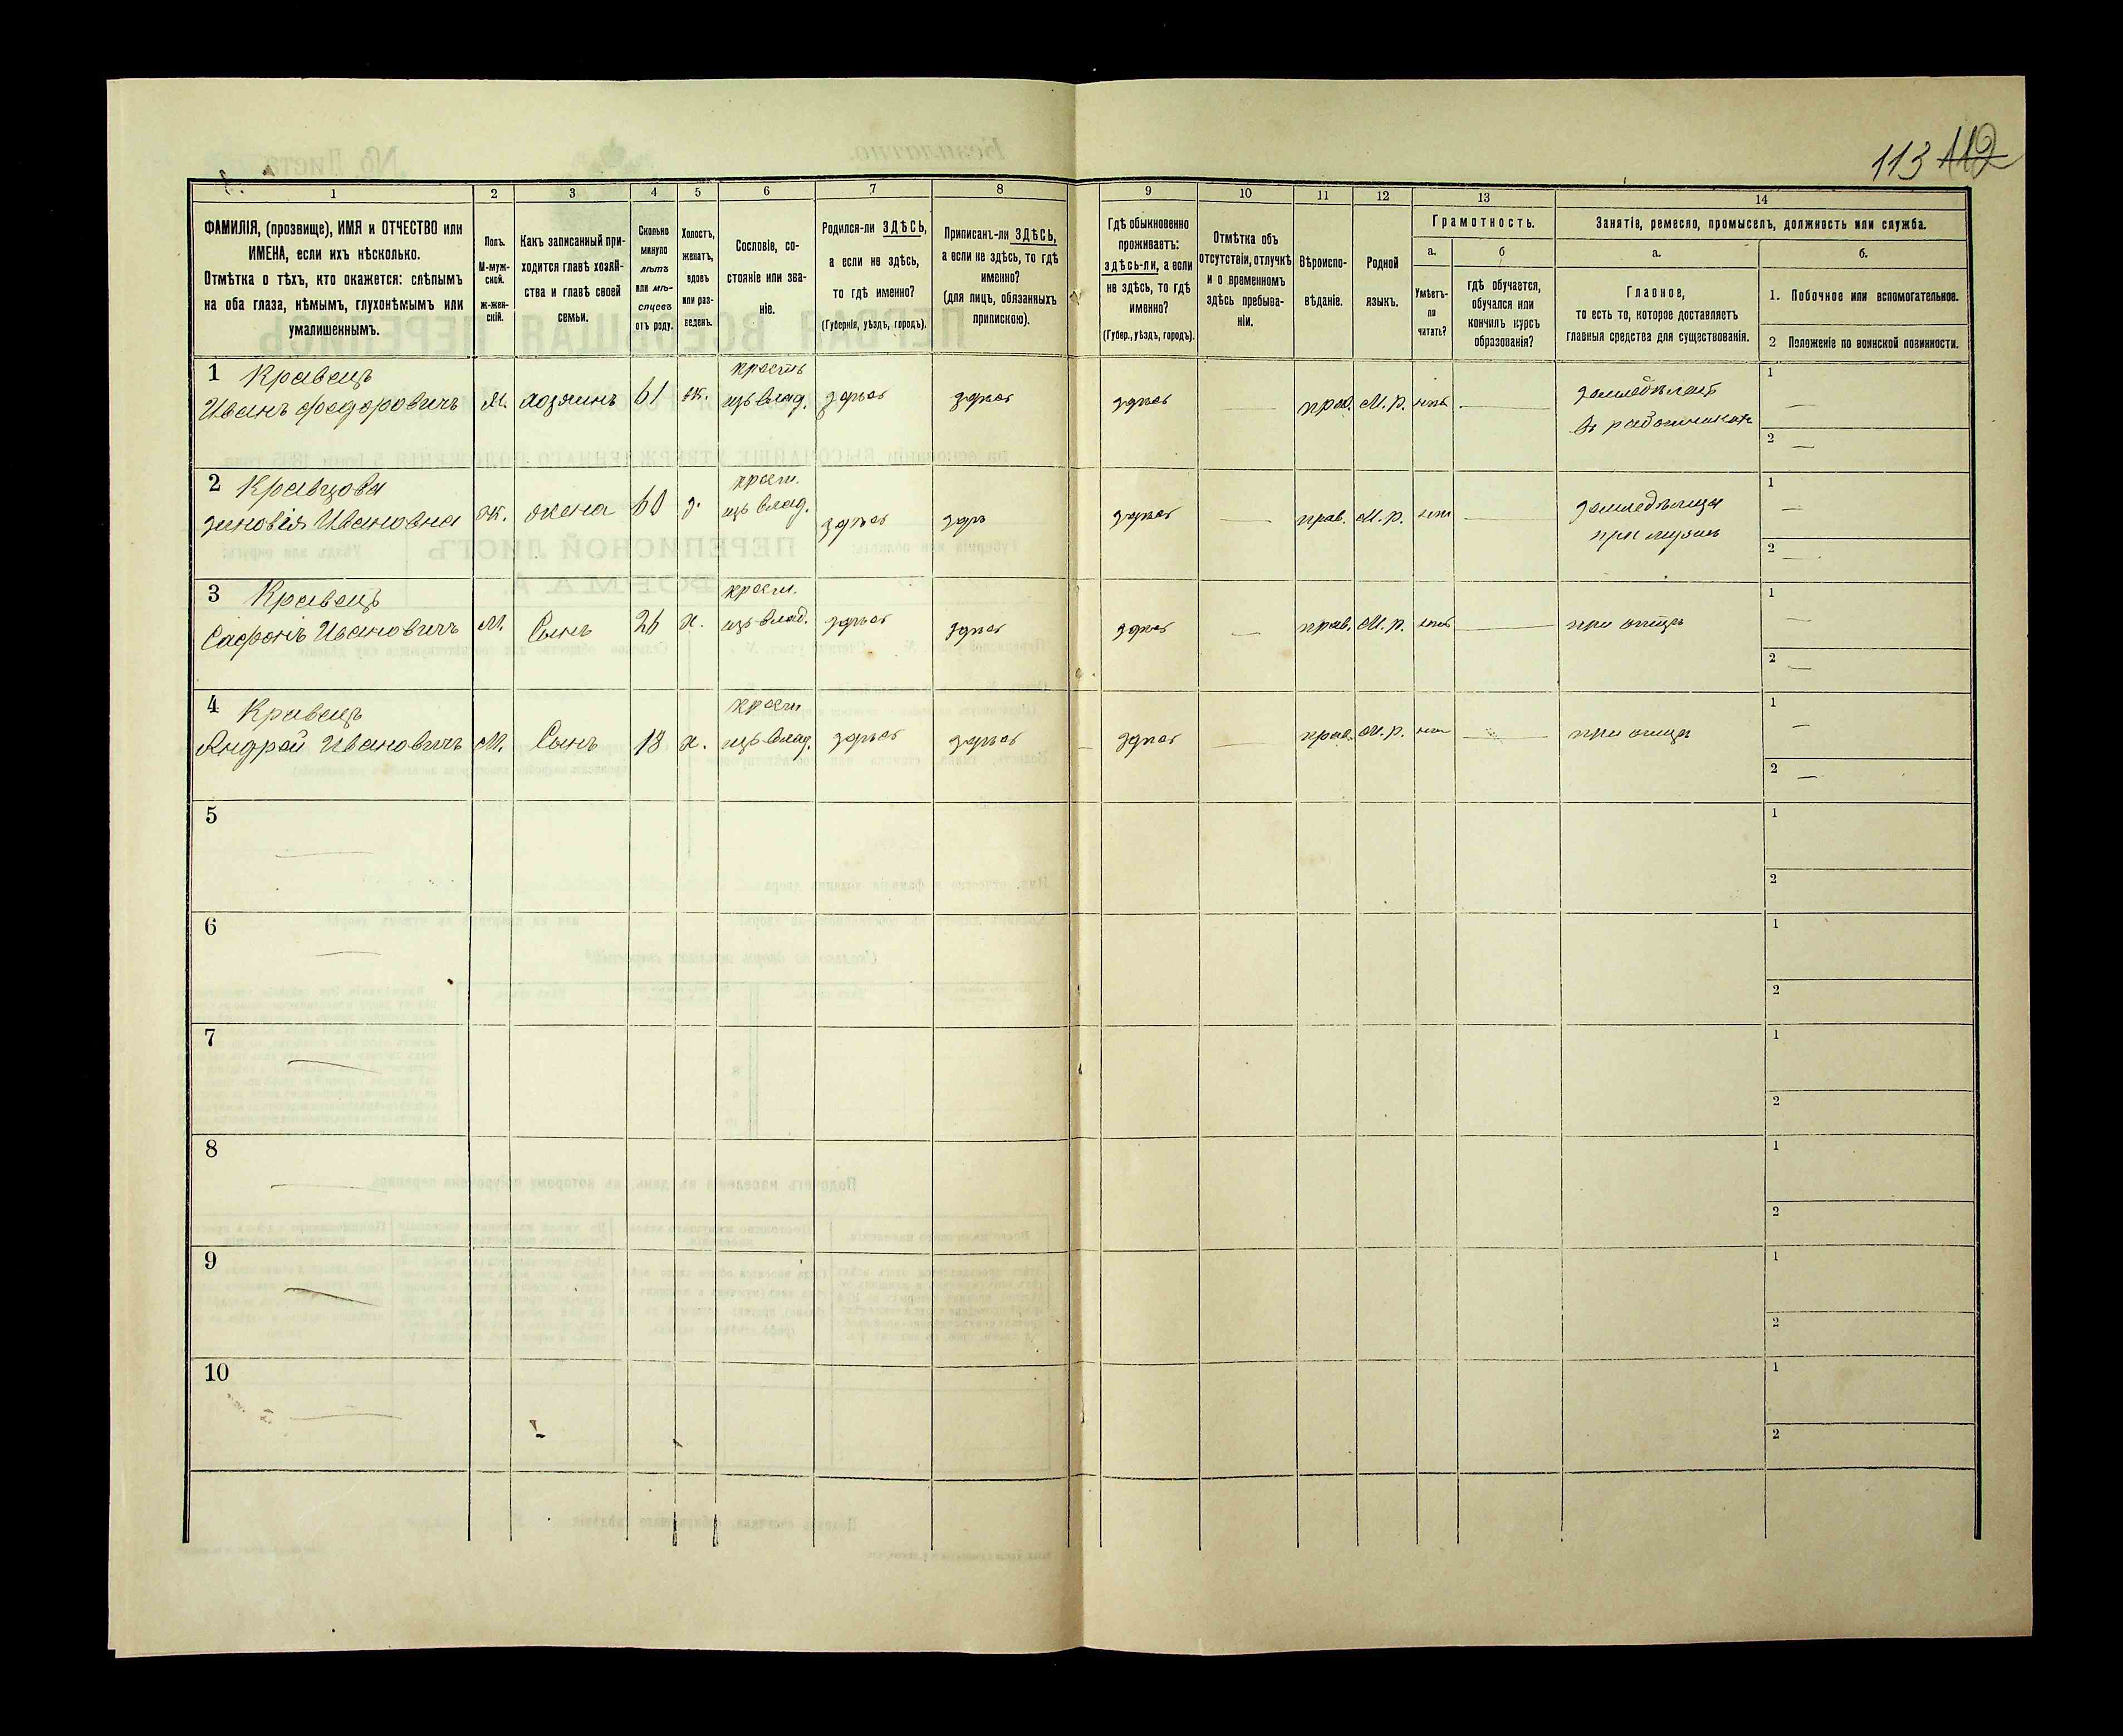 113 112
1
2
3
4
5
6
7
8
9
10
11
12
13
14
ФАМИЛІЯ, (прозвище), ИМЯ и ОТЧЕСТВО или
ИМЕНА, если ихъ нѣсколько.
Отмѣтка о тѣхъ, кто окажется: слѣпымъ
на оба глаза, нѣмымъ, глухонѣмымъ или
умалишеннымъ.
Полъ.
М-муж-
ской.
ж-жен-
скій.
Какъ записанный при-
ходится главѣ хозяй-
ства и главѣ своей
семьи.
Сколько
минуло
лѣтъ
или мѣ-
сяцевъ
отъ роду.
Холостъ,
женатъ,
вдовъ
или раз-
веденъ.
Сословіе, со-
стояніе или зва-
ніе.
Родился-ли ЗДѢСЬ,
а если не здѣсь,
то гдѣ именно?
(Губернія, уѣздъ, городъ).
Приписанъ-ли ЗДѢСЬ,
а если не здѣсь, то гдѣ
именно?
(для лицъ, обязанныхъ
припискою).
Гдѣ обыкновенно
проживаетъ:
здѣсь-ли, а если
не здѣсь, то гдѣ
именно?
(Губер., уѣздъ, городъ).
Отмѣтка объ
отсутствіи, отлучкѣ
и о временномъ
здѣсь пребыва-
ніи.
Вѣроиспо-
вѣданіе.
Родной
языкъ.
Грамотность.
а.
Умѣетъ-
ли
читать?
б
гдѣ обучается,
обучался или
кончилъ курсъ
образованія?
Занятіе, ремесло, промыселъ, должность или служба.
а.
Главное,
то есть то, которое доставляетъ
главныя средства для существованія.
б.
1. Побочное или вспомогательное.
2 Положеніе по воинской повинности.
1 Кравецъ
Иванъ Федоровичъ м. хозяинъ 61 ж. крест. изъ влад. здѣсь здѣсь здѣсь — прав. М. р. нѣтъ — земледѣлецъ
въ работникахъ
1 —
2 —
2 Кравцова
Зиновія Ивановна ж. жена 60 з. крест. изъ влад. здѣсь здѣсь — прав. М. р. нѣтъ —
при мужѣ
1 —
2 —
3 Кравецъ
Сафонъ Ивановичъ М. Сынъ 26 х. крест. изъ влад. здѣсь здѣсь здѣсь — прав. М. р. нѣтъ — при отцѣ
1 —
2 —
4 Кравецъ
Андрей Ивановичъ М. Сынъ 18 х. крест. изъ влад. здѣсь здѣсь — здѣсь — прав. М. р. нѣтъ — при отцѣ
1 —
2 —
5 —
1
2
6 —
1
2
7 —
1
2
8 —
1
2
9 —
1
2
10 —
1
2